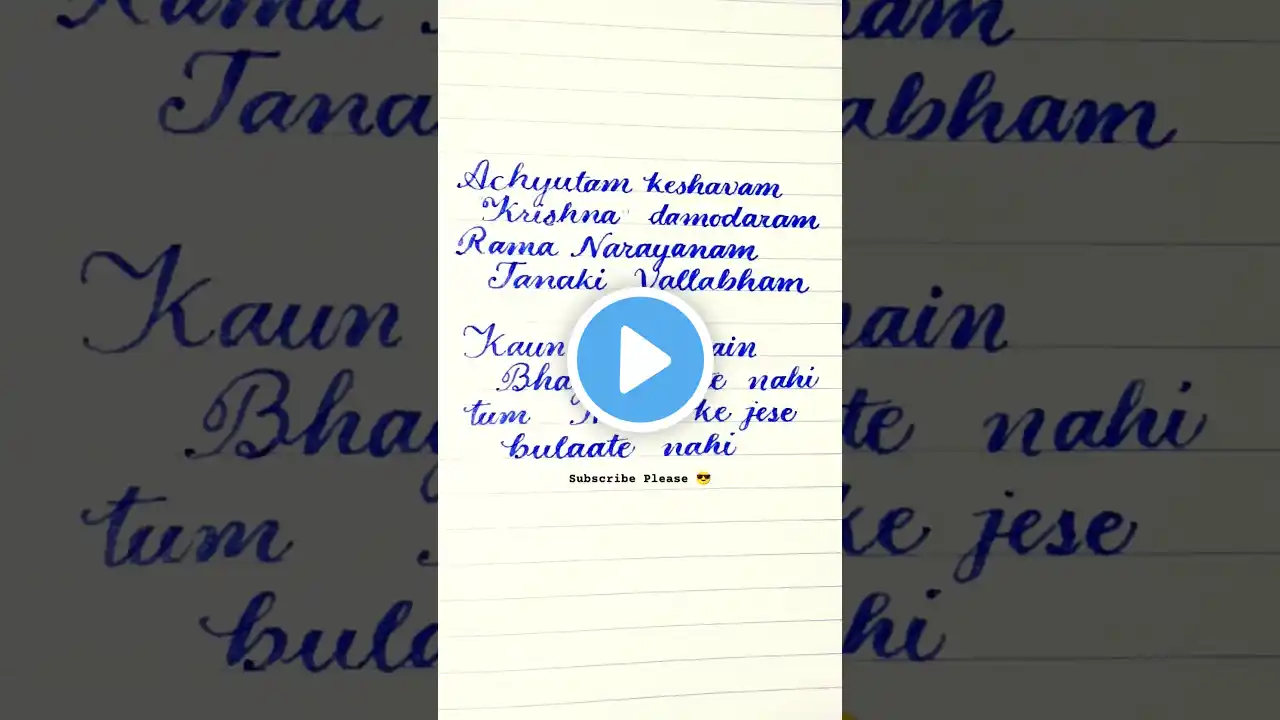 Achyutam keshavam
Krishna damodaram
Rama Narayanam
Janaki Vallabham
Kaun
nahi
tum ke jese
bulaate nahi
Subscribe Please 😎